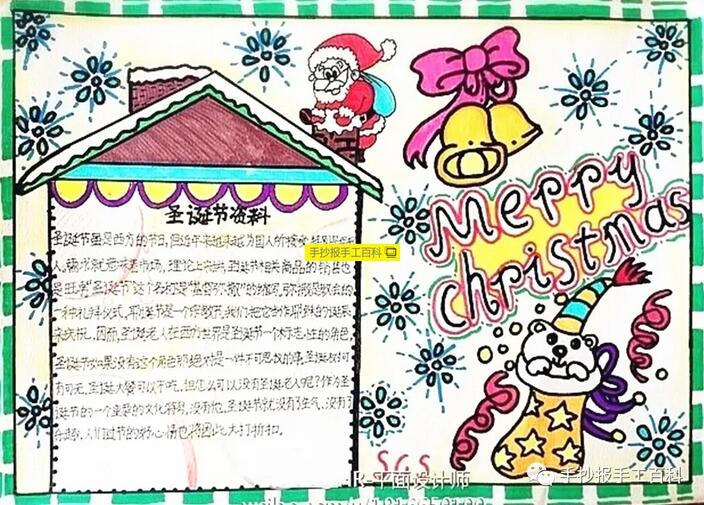 圣诞节资料
圣诞节虽是西方的节日,但近年来越来越为国人所接受
人。需求就意味着市场,理论上来讲,圣诞节相关商品的销售也
圣诞节”这个名称是“基督弥撒”的缩写。弥撒是教会的
一种礼拜仪式。
因而,圣诞老人在西方世界是圣诞节一个标志性的角色,
圣诞节如果没有这个角色那绝对是一件不可思议的事。圣诞树可
有可无,圣诞大餐可以不吃,但怎么可以没有圣诞老人呢?作为圣
诞节的一个重要的文化符号,没有他,圣诞节就没有了生气,没有了
乐趣,人们过节的好心情也将因此大打折扣。
手抄报手工百科
Meppy
christmas
SGS
平面设计师
手抄报手工百科